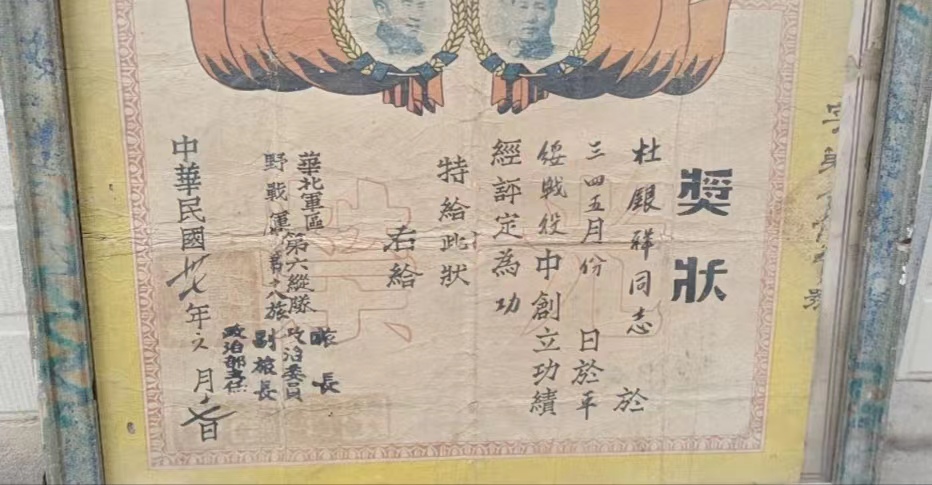 獎狀
杜銀祥同志 於
三四五月份 日於平
綏戰役中創立功績
經評定為 功
特給此狀
右給
華北軍區第六縱隊
野戰軍 旅
旅長
政治委員
副旅長
政治部主任
中華民國卅七年六月 日